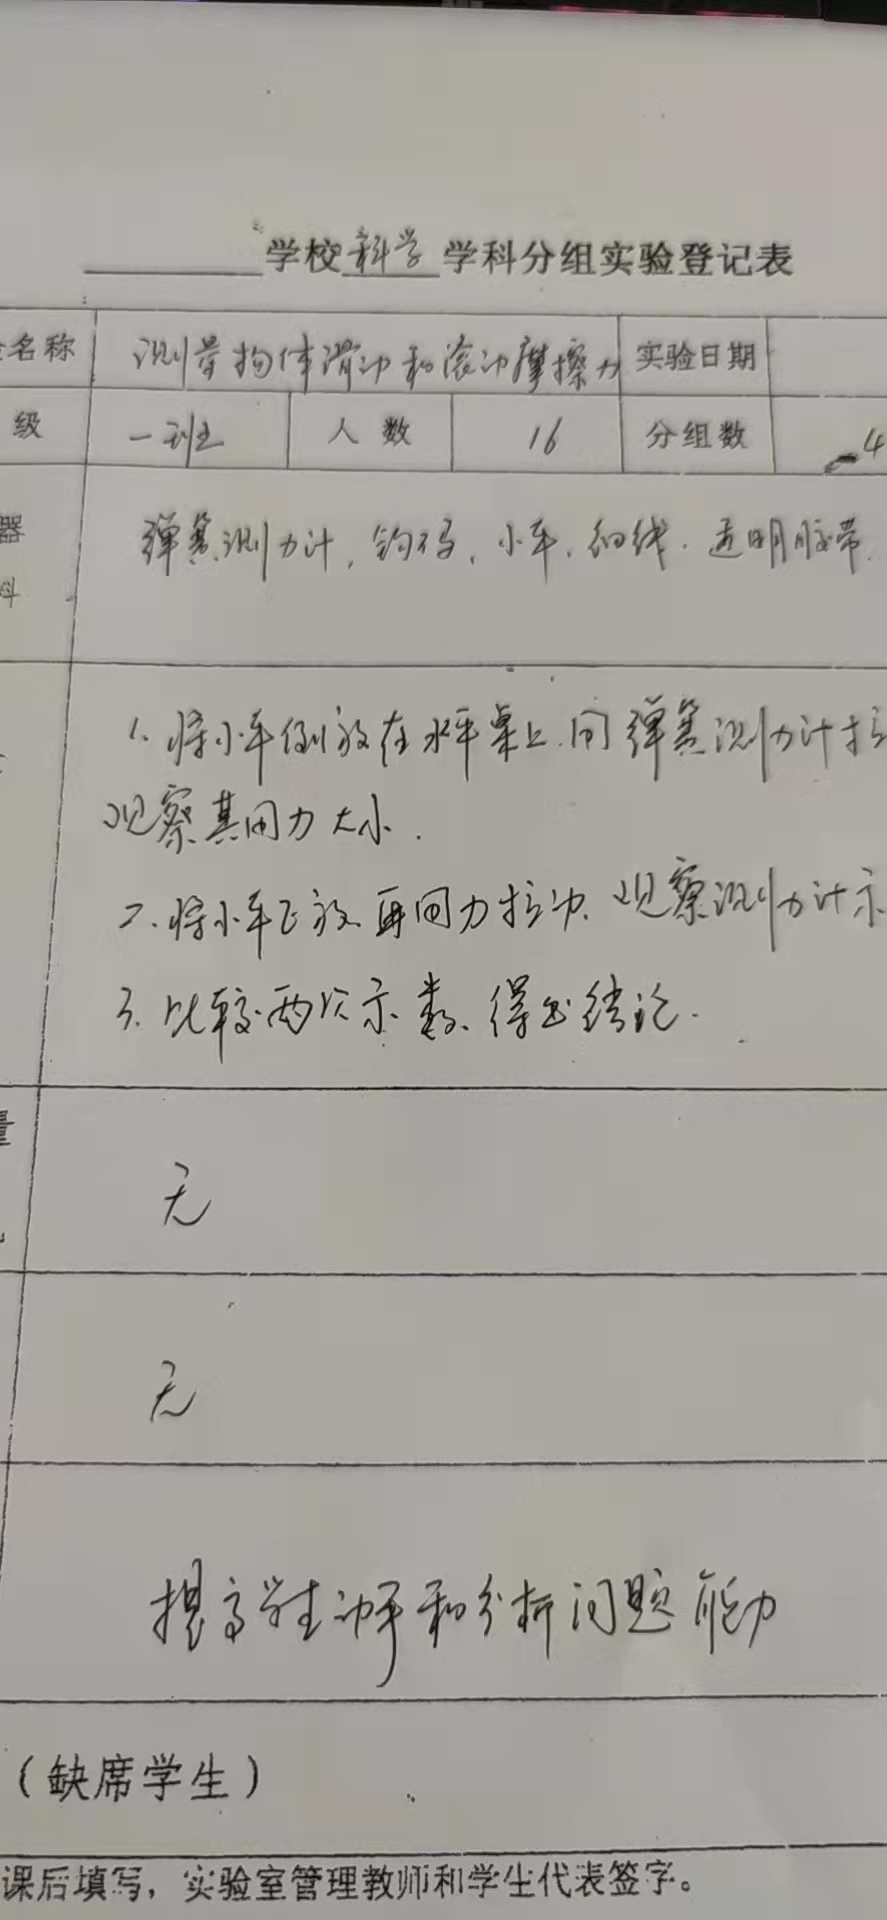 学校科学学科分组实验登记表
名称 测量物体滑动和滚动摩擦力 实验日期
级 一班 人数 16 分组数 4
器 弹簧测力计，钩码、小车、细线、透明胶带
料
1、将小车倒放在水平桌上.用弹簧测力计拉
观察其用力大小.
2、将小车正放再用力拉动、观察测力计示
3、比较两次示数、得出结论.
量 无
无
提高学生动手和分析问题能力
（缺席学生）
课后填写，实验室管理教师和学生代表签字。